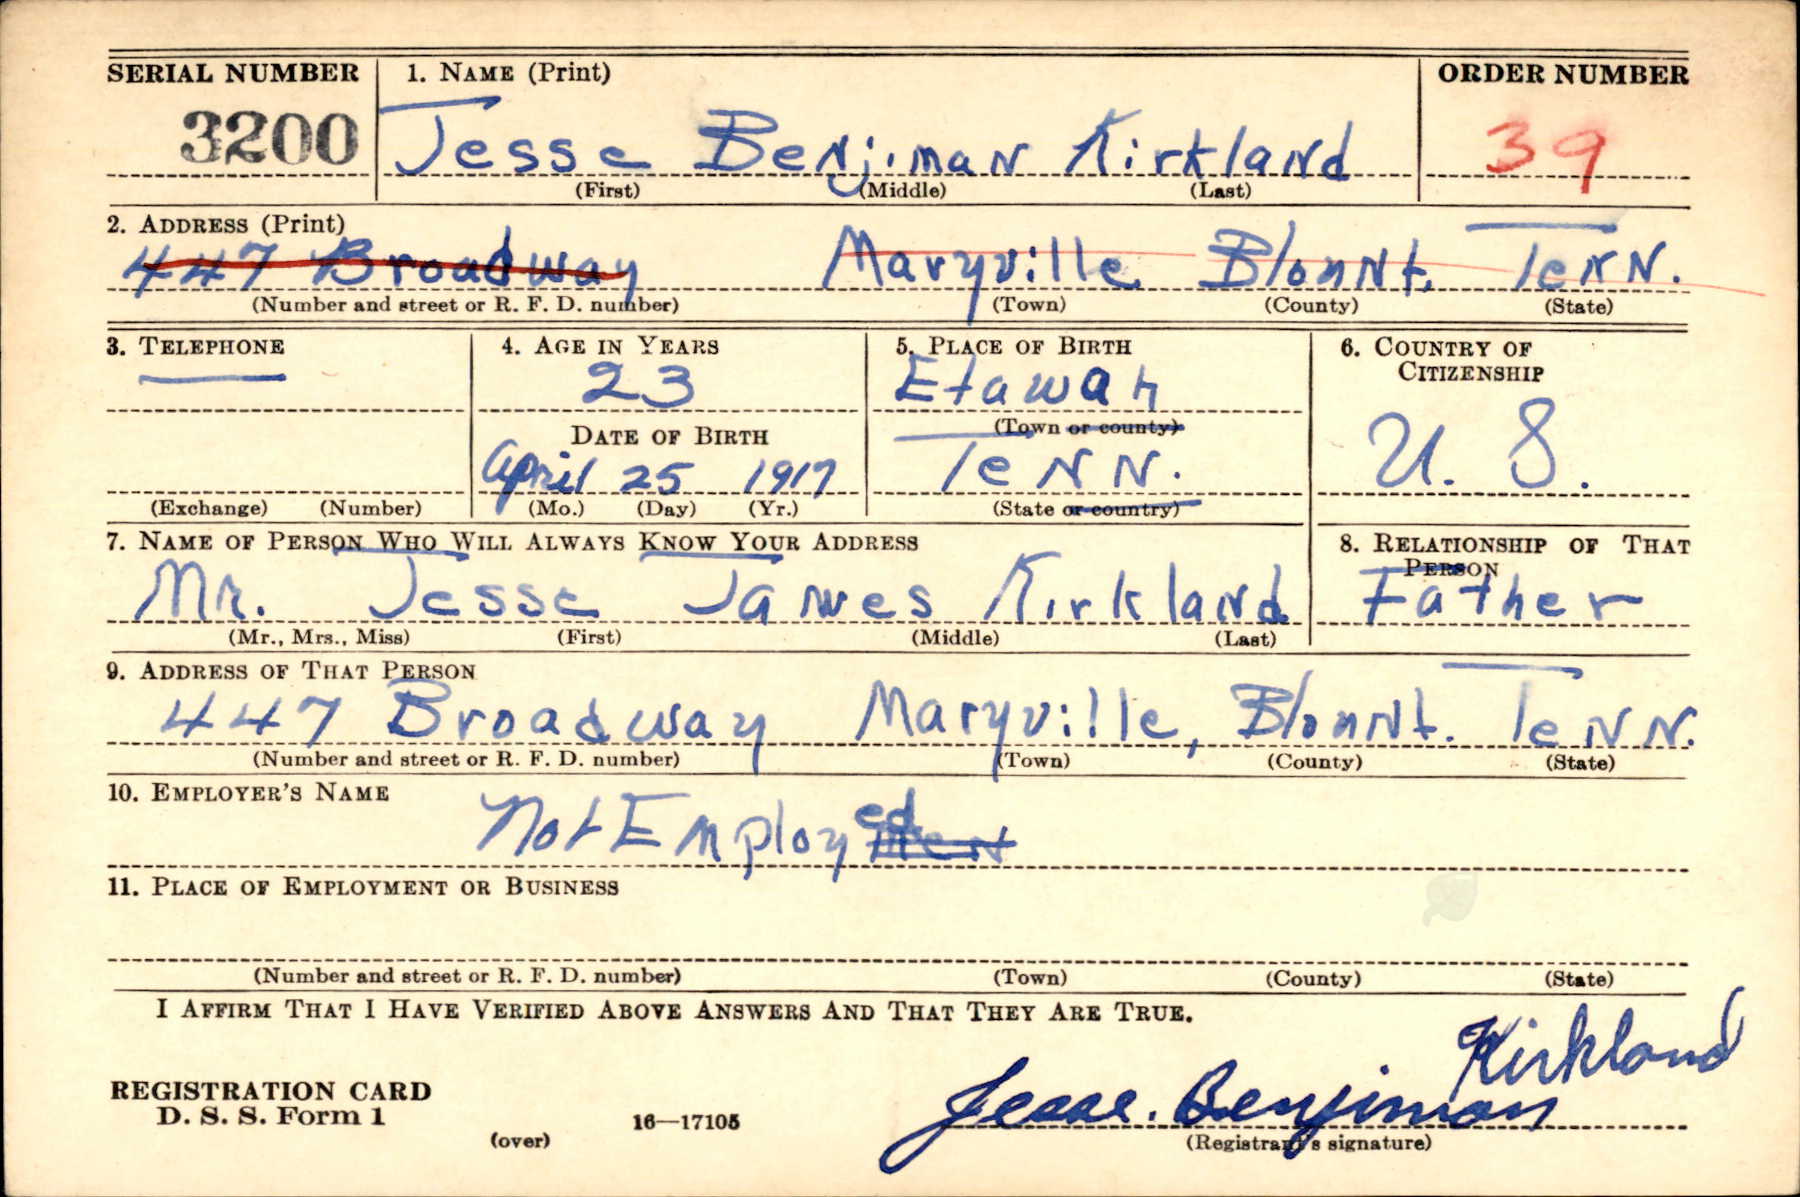 SERIAL NUMBER 1. NAME (Print) ORDER NUMBER
3200 Jesse Benjiman Kirkland 39
(First) (Middle) (Last)
2. ADDRESS (Print)
447 Broadway Maryville Blonnt. TeNN.
(Number and street or R. F. D. number) (Town) (County) (State)
3. TELEPHONE 4. AGE IN YEARS 5. PLACE OF BIRTH 6. COUNTRY OF CITIZENSHIP
— 23 Etawah U. S.
DATE OF BIRTH (Town or county)
April 25 1917 TeNN.
(Exchange) (Number) (Mo.) (Day) (Yr.) (State or country)
7. NAME OF PERSON WHO WILL ALWAYS KNOW YOUR ADDRESS 8. RELATIONSHIP OF THAT PERSON
Mr. Jesse James Kirkland Father
(Mr., Mrs., Miss) (First) (Middle) (Last)
9. ADDRESS OF THAT PERSON
447 Broadway Maryville, Blonnt. TeNN.
(Number and street or R. F. D. number) (Town) (County) (State)
10. EMPLOYER'S NAME
Not Employed ment
11. PLACE OF EMPLOYMENT OR BUSINESS
(Number and street or R. F. D. number) (Town) (County) (State)
I AFFIRM THAT I HAVE VERIFIED ABOVE ANSWERS AND THAT THEY ARE TRUE.
REGISTRATION CARD
D. S. S. Form 1 16—17105
(over)
Jesse. Benjiman Kirkland
(Registrant's signature)